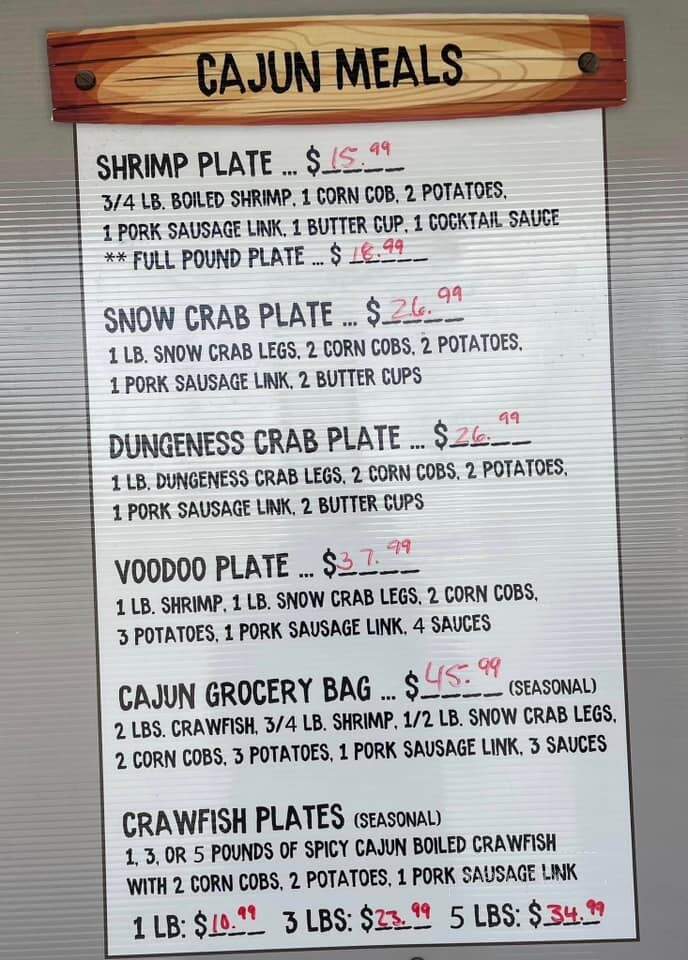 CAJUN MEALS
SHRIMP PLATE ... $15.99
3/4 LB. BOILED SHRIMP, 1 CORN COB, 2 POTATOES,
1 PORK SAUSAGE LINK, 1 BUTTER CUP, 1 COCKTAIL SAUCE
** FULL POUND PLATE ... $ 18.99
SNOW CRAB PLATE ... $26.99
1 LB. SNOW CRAB LEGS, 2 CORN COBS, 2 POTATOES,
1 PORK SAUSAGE LINK, 2 BUTTER CUPS
DUNGENESS CRAB PLATE ... $26.99
1 LB. DUNGENESS CRAB LEGS, 2 CORN COBS, 2 POTATOES,
1 PORK SAUSAGE LINK, 2 BUTTER CUPS
VOODOO PLATE ... $37.99
1 LB. SHRIMP, 1 LB. SNOW CRAB LEGS, 2 CORN COBS,
3 POTATOES, 1 PORK SAUSAGE LINK, 4 SAUCES
CAJUN GROCERY BAG ... $45.99 (SEASONAL)
2 LBS. CRAWFISH, 3/4 LB. SHRIMP, 1/2 LB. SNOW CRAB LEGS,
2 CORN COBS, 3 POTATOES, 1 PORK SAUSAGE LINK, 3 SAUCES
CRAWFISH PLATES (SEASONAL)
1, 3, OR 5 POUNDS OF SPICY CAJUN BOILED CRAWFISH
WITH 2 CORN COBS, 2 POTATOES, 1 PORK SAUSAGE LINK
1 LB: $10.99 3 LBS: $23.99 5 LBS: $34.99